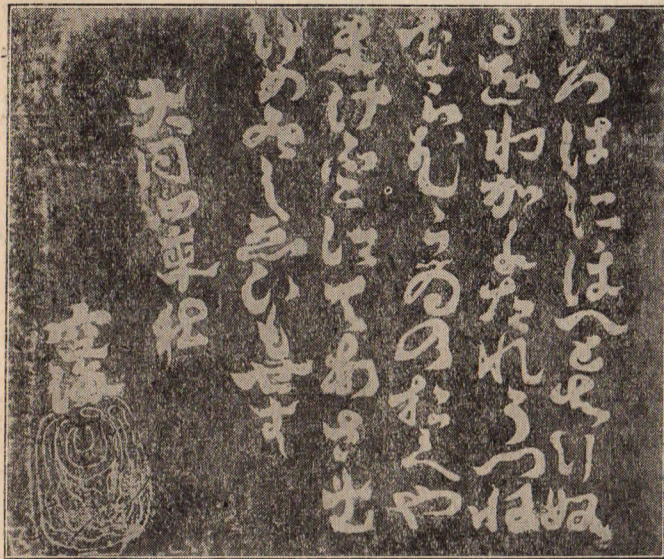 いろはにほへとちりぬ
るをわかよたれそつね
ならむうゐのおくや
まけふこえてあさき
ゆめみしゑひもせす
大同四年
空海